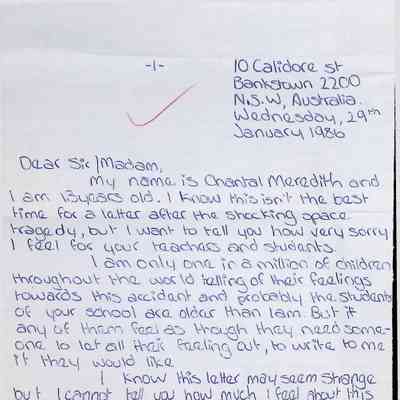 -1-
10 Calidore st
Bankstown 2200
N.S.W, Australia.
Wednesday, 29th
January 1986
Dear Sir/Madam,
My name is Chantal Meredith and
I am 13years old. I know this isn't the best
time for a letter after the shocking space
tragedy, but I want to tell you how very sorry
I feel for your teachers and students.
I am only one in a million of children
throughout the world telling of their feelings
towards this accident and probably the students
of your school are older than I am. But if
any of them feel as though they need some-
one to let all their feeling out, to write to me
if they would like.
I know this letter may seem strange
but I cannot tell you how much I feel about this